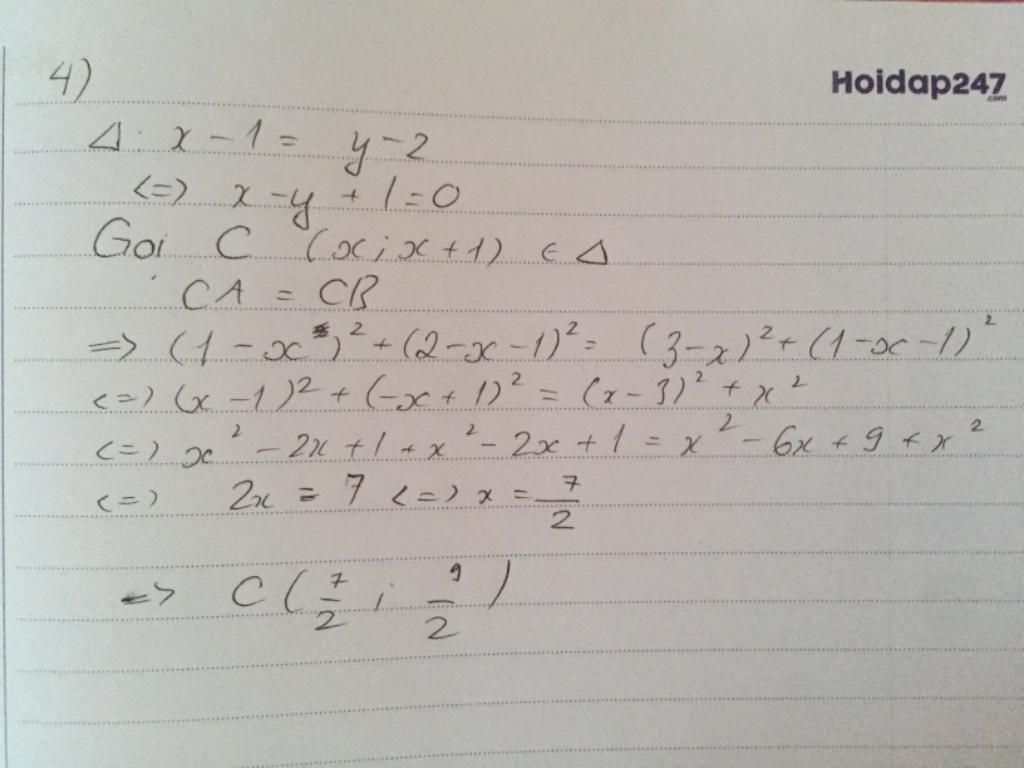 4)
Hoidap247
.com
Δ: x - 1 = y - 2
<=> x - y + 1 = 0
Gọi C (x; x + 1) ∈ Δ
CA = CB
=> (1 - x)² + (2 - x - 1)² = (3 - x)² + (1 - x - 1)²
<=> (x - 1)² + (-x + 1)² = (x - 3)² + x²
<=> x² - 2x + 1 + x² - 2x + 1 = x² - 6x + 9 + x²
<=> 2x = 7 <=> x = 7/2
=> C (7/2; 9/2)